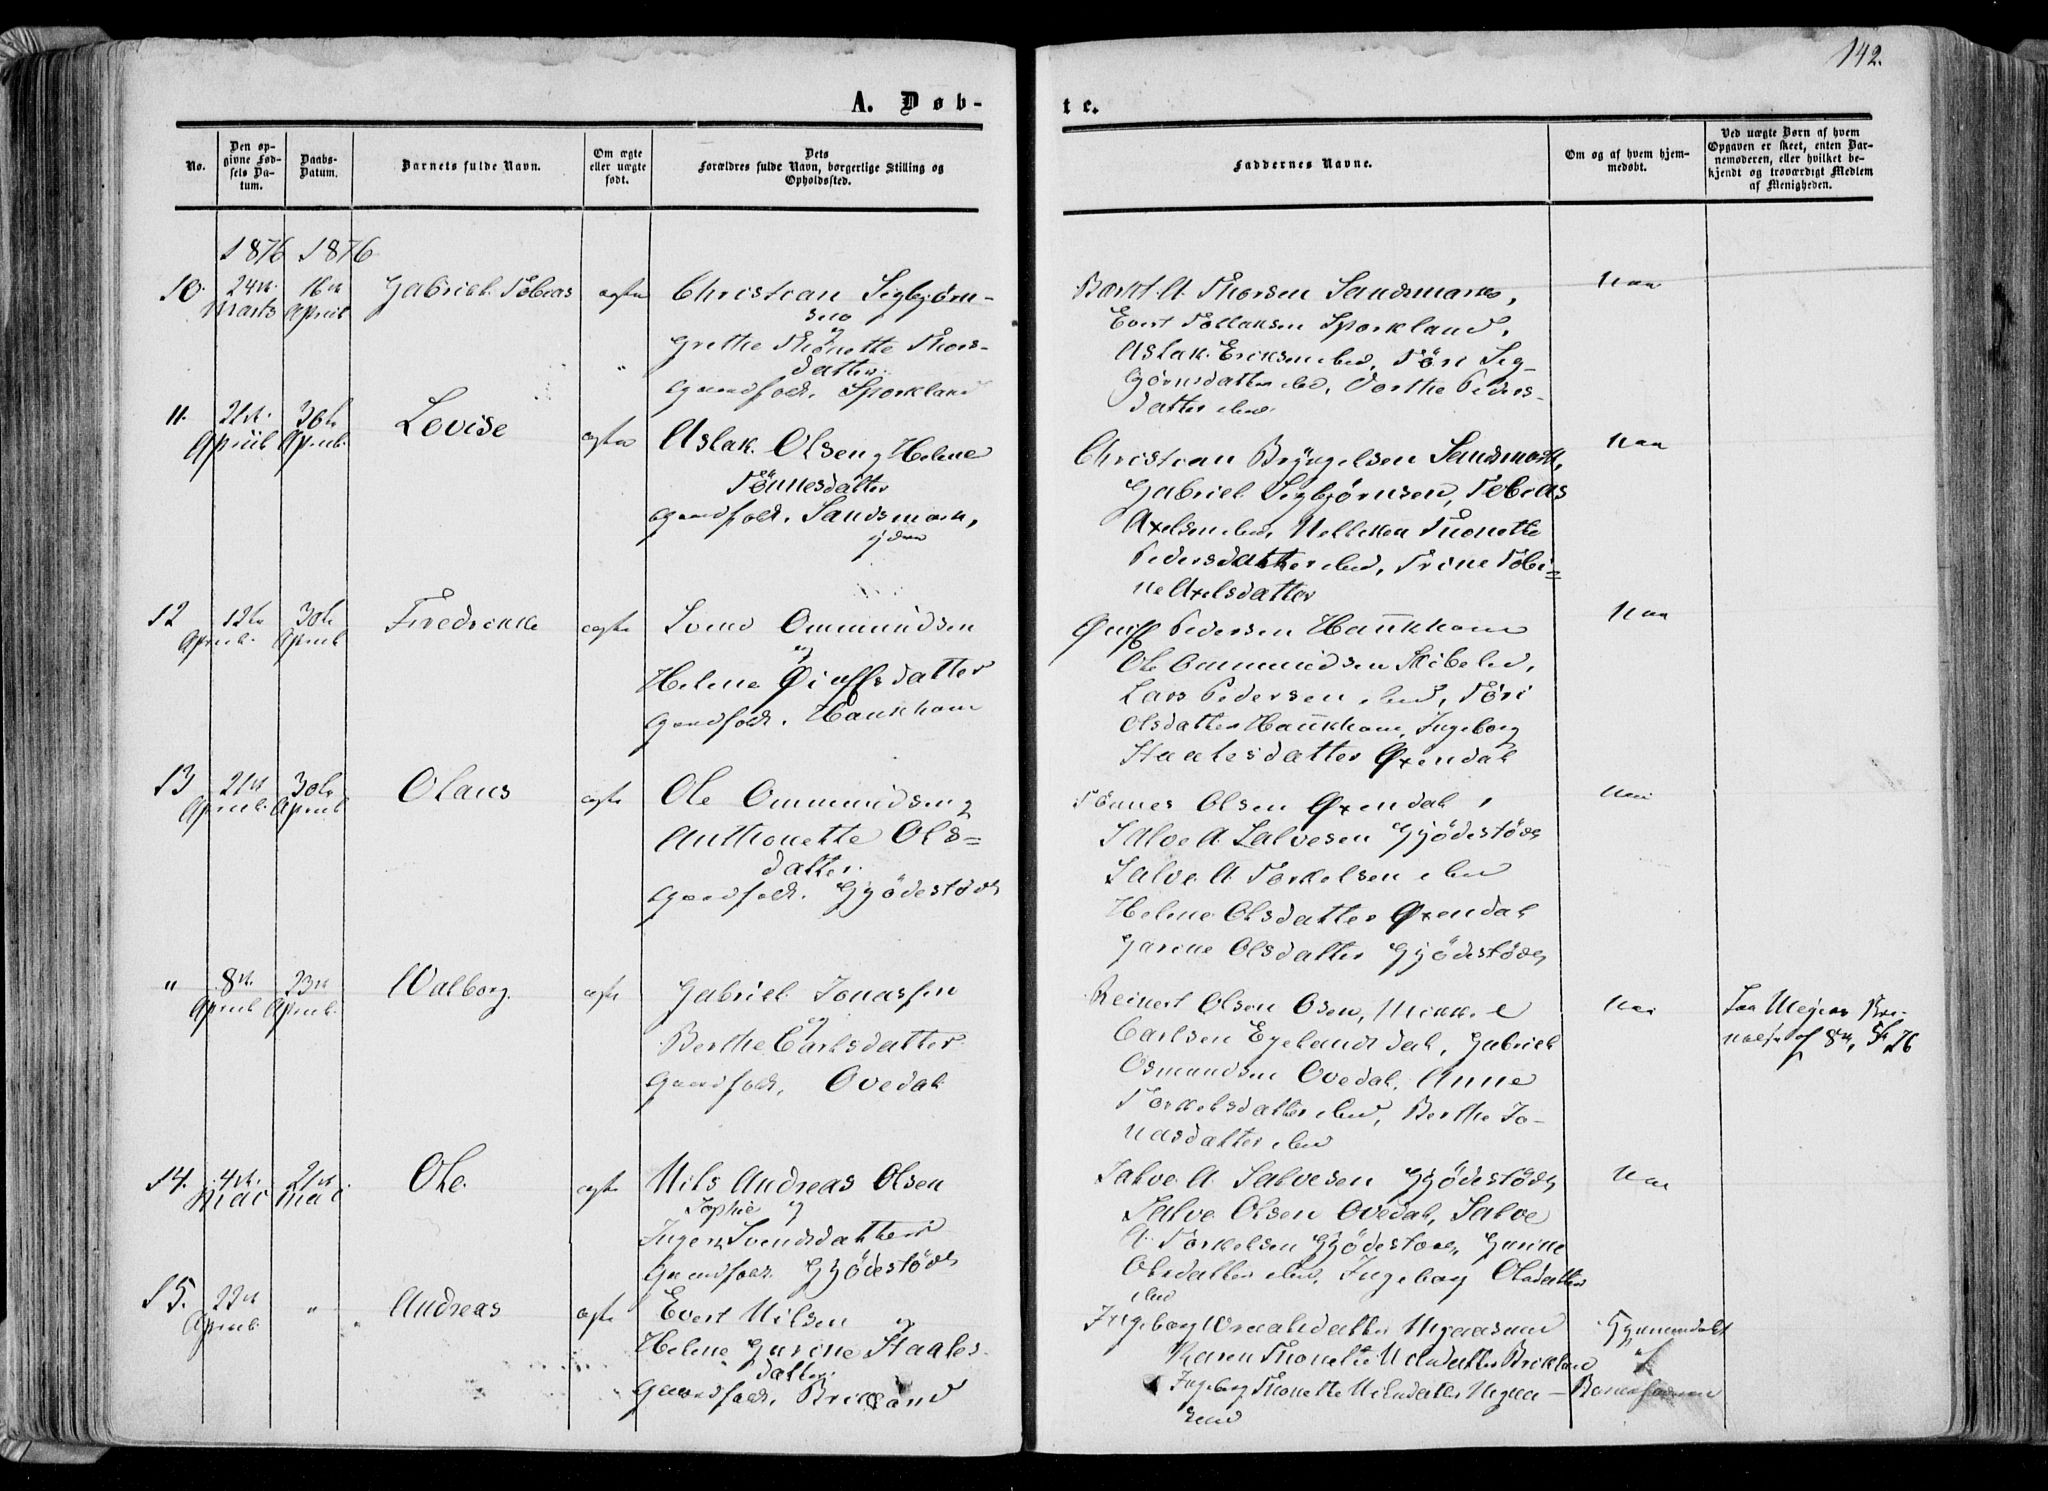 142.
A. Døb-
te.
No.
Den op-
givne Fød-
sels Da-
tum.
Daabs-
Datum.
Barnets fulde Navn.
Om ægte
eller uægte
født.
Dets
Forældres fulde Navn, borgerlige Stilling og
Opholdssted.
Faddernes Navne.
Om og af hvem hjem-
medøbt.
Ved uægte Børn af hvem
Opgaven er skeet, enten Bar-
nemoderen, eller hvilket be-
kjendt og troværdigt Medlem
af Menigheden.
1876 1876
10. 24de Marts 16de April Gabriel Tobias ægte
Christian Sigbjørn-
sen
og
Grethe Thonette Thors-
datter.
Gaardfolk. Sporkland
A. Thorsen Sandsmark,
Evert Tollaksen Sporkland,
Aslak Eriksen ibid, Töri Sig-
bjørnsdatter ibid, Dorthe Peders-
datter ibid.
Nei
11. 21de April 30te April. Lovise ægte
Aslak Olsen og Helene
Tönnesdatter
Gaardfolk. Sandsmark,
Christian Bryngelsen Sandsmark,
Gabriel Sigbjørnsen, Tobias
Axelsen ibid, Thonette
Pedersdatter ibid, Trine Tobi=
ne Axelsdatter
Nei
12 12te April. 30te April Fredrikke ægte
Ommundsen
og
Helene datter
Gaardfolk. Haukhom
Pedersen Haukhom
Ole Ommundsen ibid,
Lars Pedersen ibid, Töri
Olsdatter Haukhom, Ingeborg
Staalesdatter Øxendal
Nei
13 21de April. 30te April Olaus ægte
Ole Ommundsen og
Anthonette Ols=
datter.
Gaardfolk. Gjödestöl
Tönnes Olsen Øxendal,
Salve A. Salvesen Gjödestöl
Salve A. Torkelsen ibid
Helene Olsdatter Øxendal
Gurine Olsdatter Gjödestöl
Nei
" 8de April 23de April. Walborg. ægte
Gabriel Jonassen
og
Berthe Carlsdatter
Gaardfolk, Ovedal
Reinert Olsen Osen, Mikkel
Carlsen Egelandsdal, Gabriel
Osmundsen Ovedal, Anne
Torkelsdatter ibid, Berthe Jo-
nasdatter ibid
Nei
14. 4de Mai 21de Mai Ole. ægte
Nils Andreas Olsen
Sophie og
Inger Svendsdatter
Gaardfolk. Gjödestöl
Salve A. Salvesen Gjödestöl
Salve Olsen Ovedal, Salve
A. Torkelsen Gjödestöl, Gurine
Olsdatter ibid, Ingeborg Olsdatter
ibid
Nei
15. 22de April. " Andreas ægte
Evert Nilsen og
Helene Gurine Staales-
datter.
Gaardfolk, Brikland
Ingeborg
Karen Thonette Nilsdatter Brikland
Ingeborg Thonette Nilsdatter